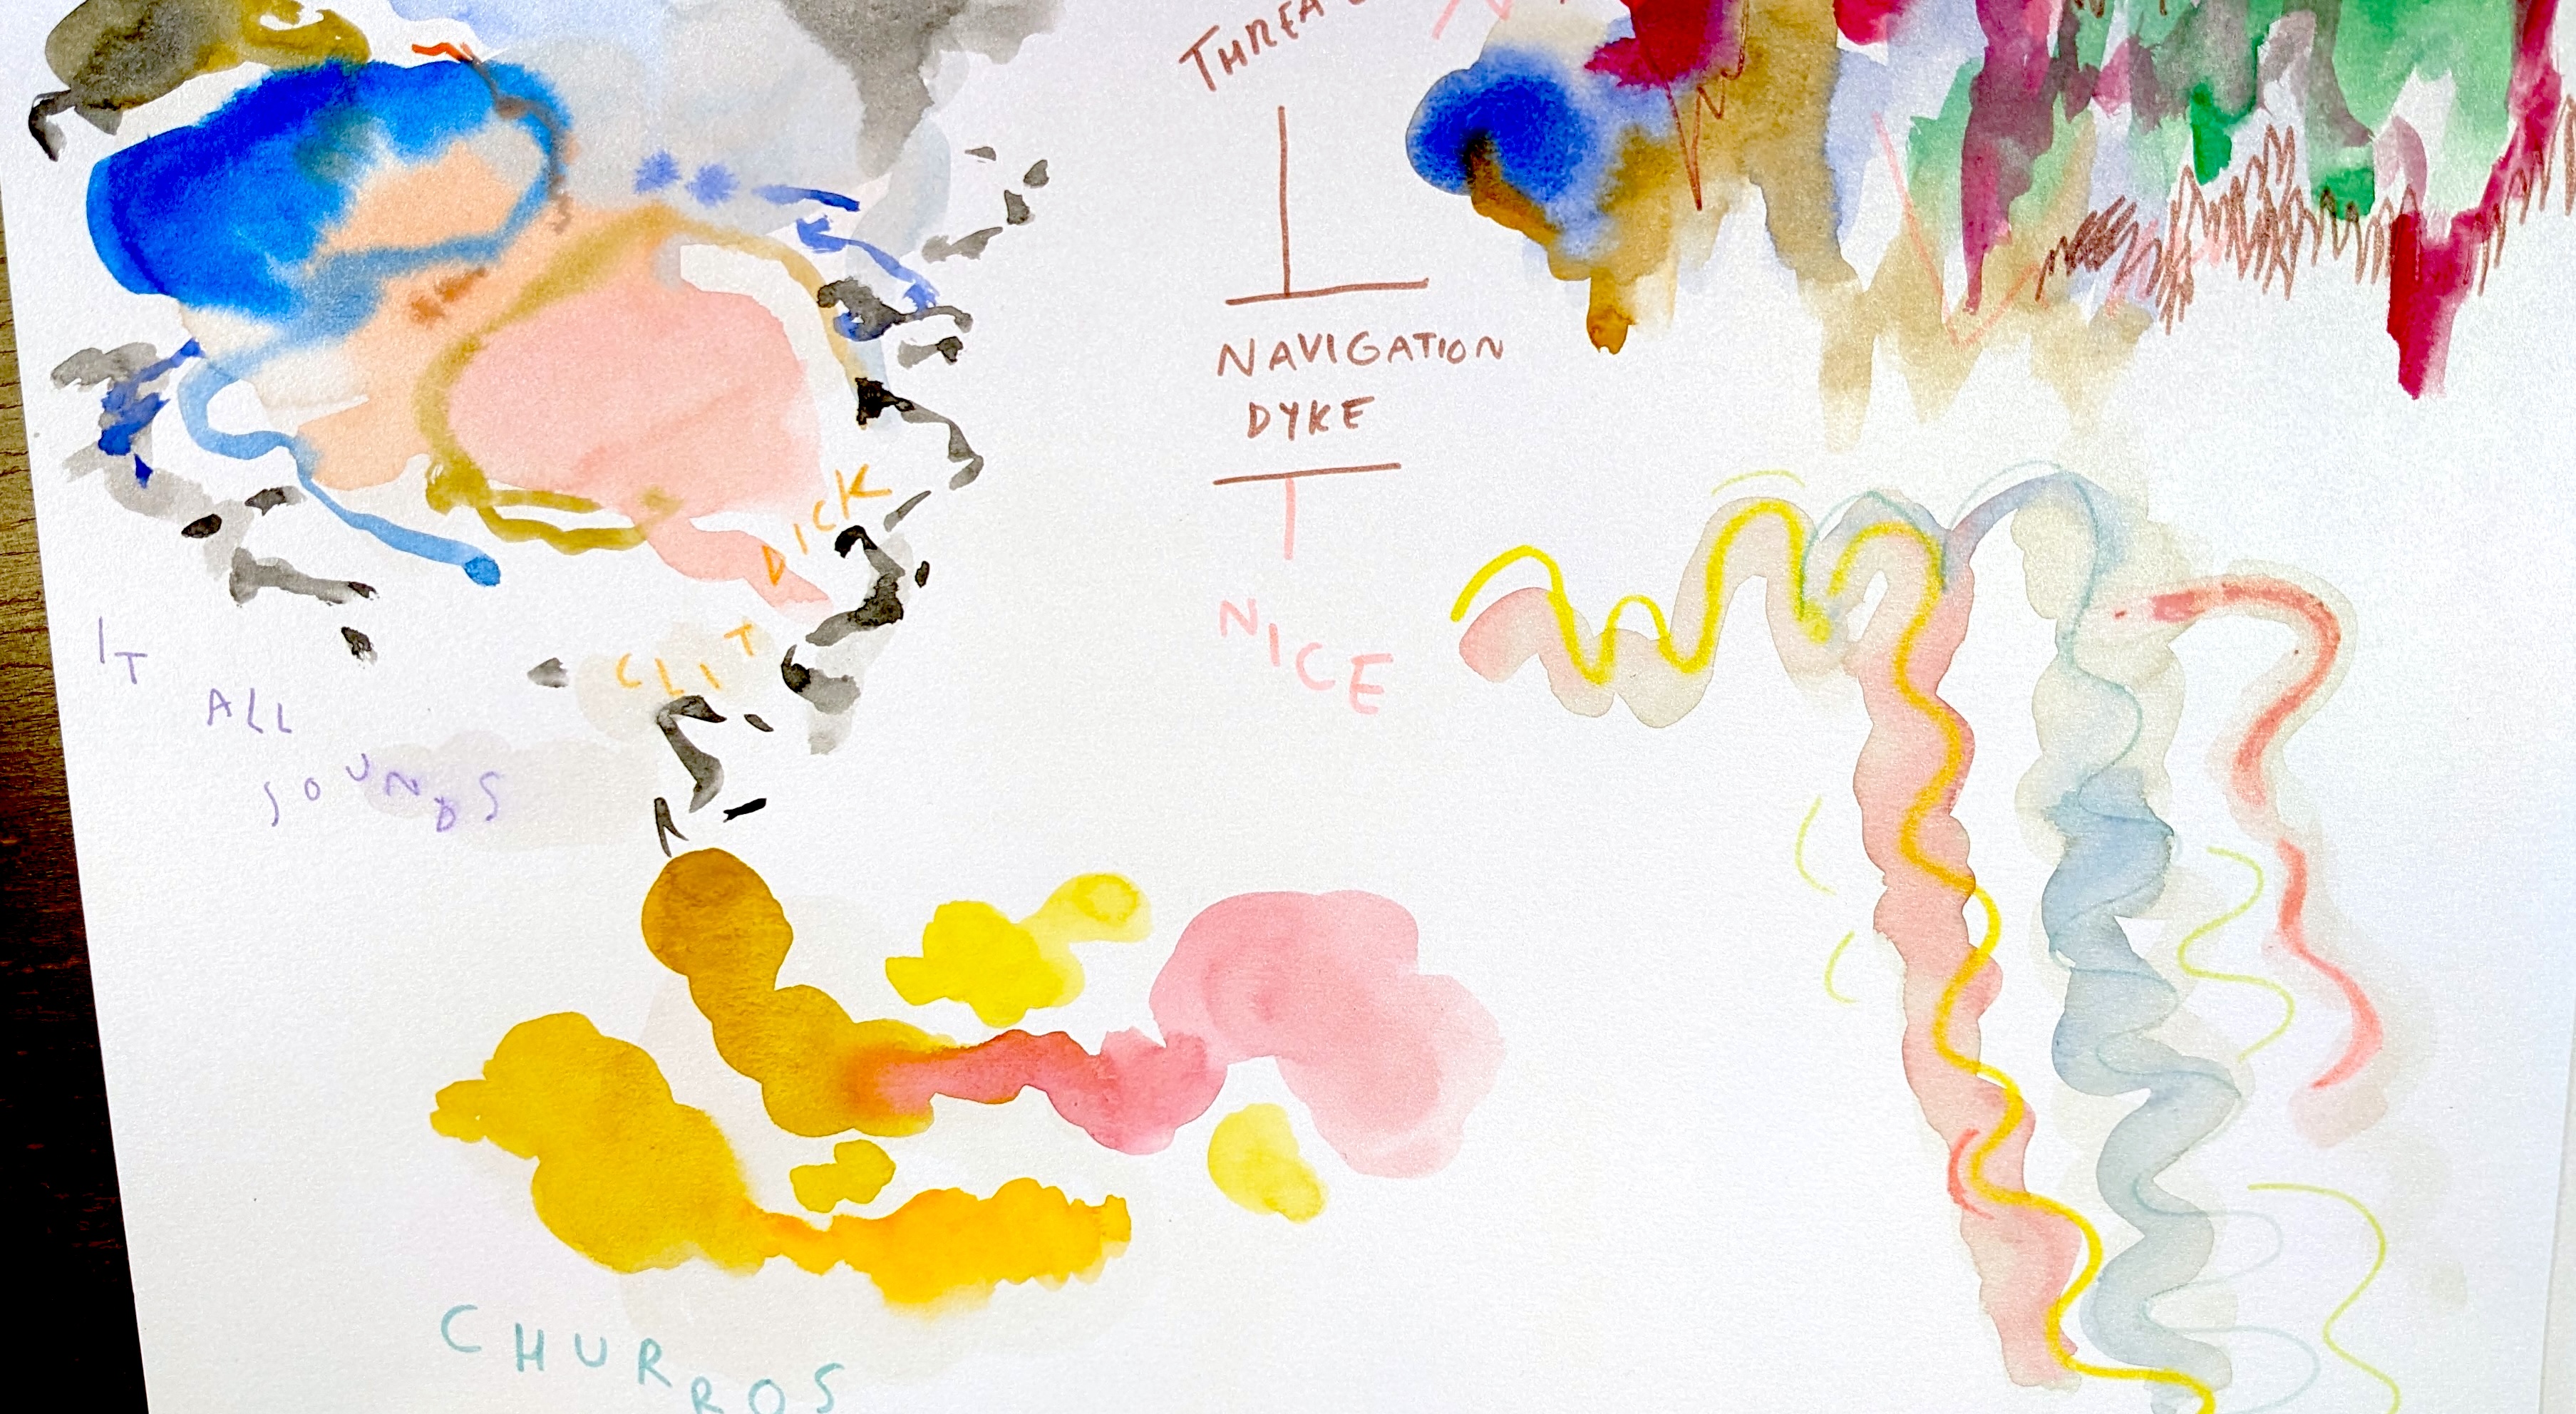 NAVIGATION
DYKE
NICE
DICK
CLIT
IT
ALL
SOUNDS
CHURROS